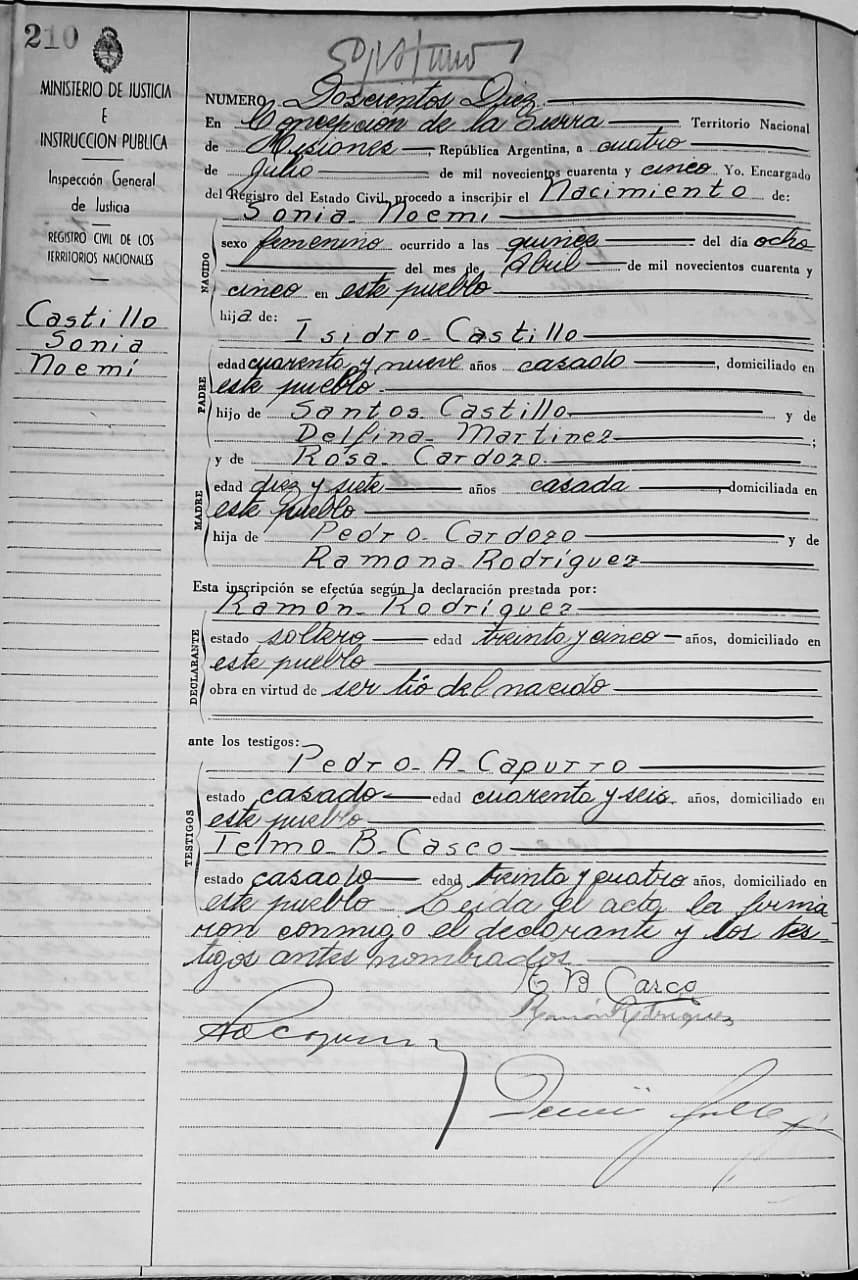 210
MINISTERIO DE JUSTICIA
E
INSTRUCCION PUBLICA
Inspección General
de Justicia
REGISTRO CIVIL DE LOS
TERRITORIOS NACIONALES
Castillo
Sonia
Noemí
NUMERO Doscientos Diez
En Concepcion de la Sierra Territorio Nacional
de Misiones, República Argentina, a cuatro
de Julio de mil novecientos cuarenta y cinco Yo. Encargado
del Registro del Estado Civil, procedo a inscribir el Nacimiento de:
Sonia Noemi
NACIDO
sexo femenino ocurrido a las quince del día ocho
del mes de Abril de mil novecientos cuarenta y
cinco en este pueblo
hija de:
Isidro Castillo
PADRE
edad cuarenta y nueve años casado, domiciliado en
este pueblo
hijo de Santos Castillo y de
Delfina Martinez;
y de Rosa Cardozo
MADRE
edad diez y siete años casada, domiciliada en
este pueblo
hija de Pedro Cardozo y de
Ramona Rodríguez
Esta inscripción se efectúa según la declaración prestada por:
Ramón Rodríguez
DECLARANTE
estado soltero edad treinta y cinco años, domiciliado en
este pueblo
obra en virtud de ser tió del nacido
ante los testigos:
Pedro A. Capurro
TESTIGOS
estado casado edad cuarenta y seis años, domiciliado en
este pueblo
Telmo B. Casco
estado casado edad treinta y cuatro años, domiciliado en
este pueblo Leida el acta la firma-
ron conmigo el declarante y los tes-
tigos antes nombrados
T B Casco
Ramón Rodriguez